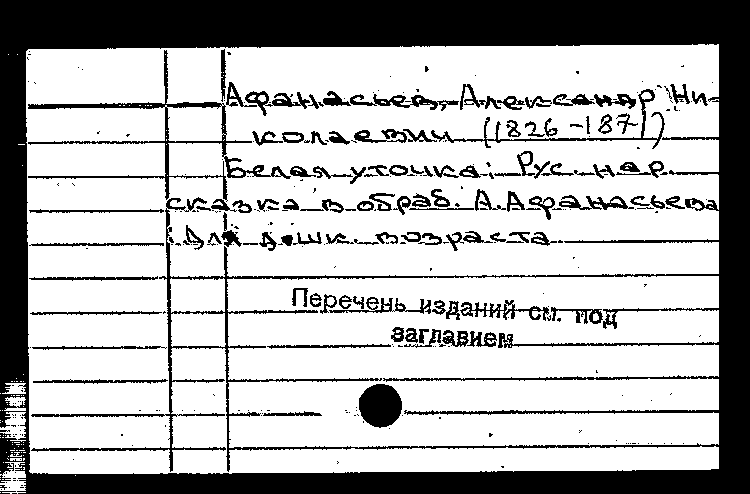 Афанасьев, Александр Ни-
колаевич (1826-1871)
Белая уточка: Рус. нар.
сказка в обраб. А.Афанасьева
: Для дошк. возраста
Перечень изданий см. под
заглавием